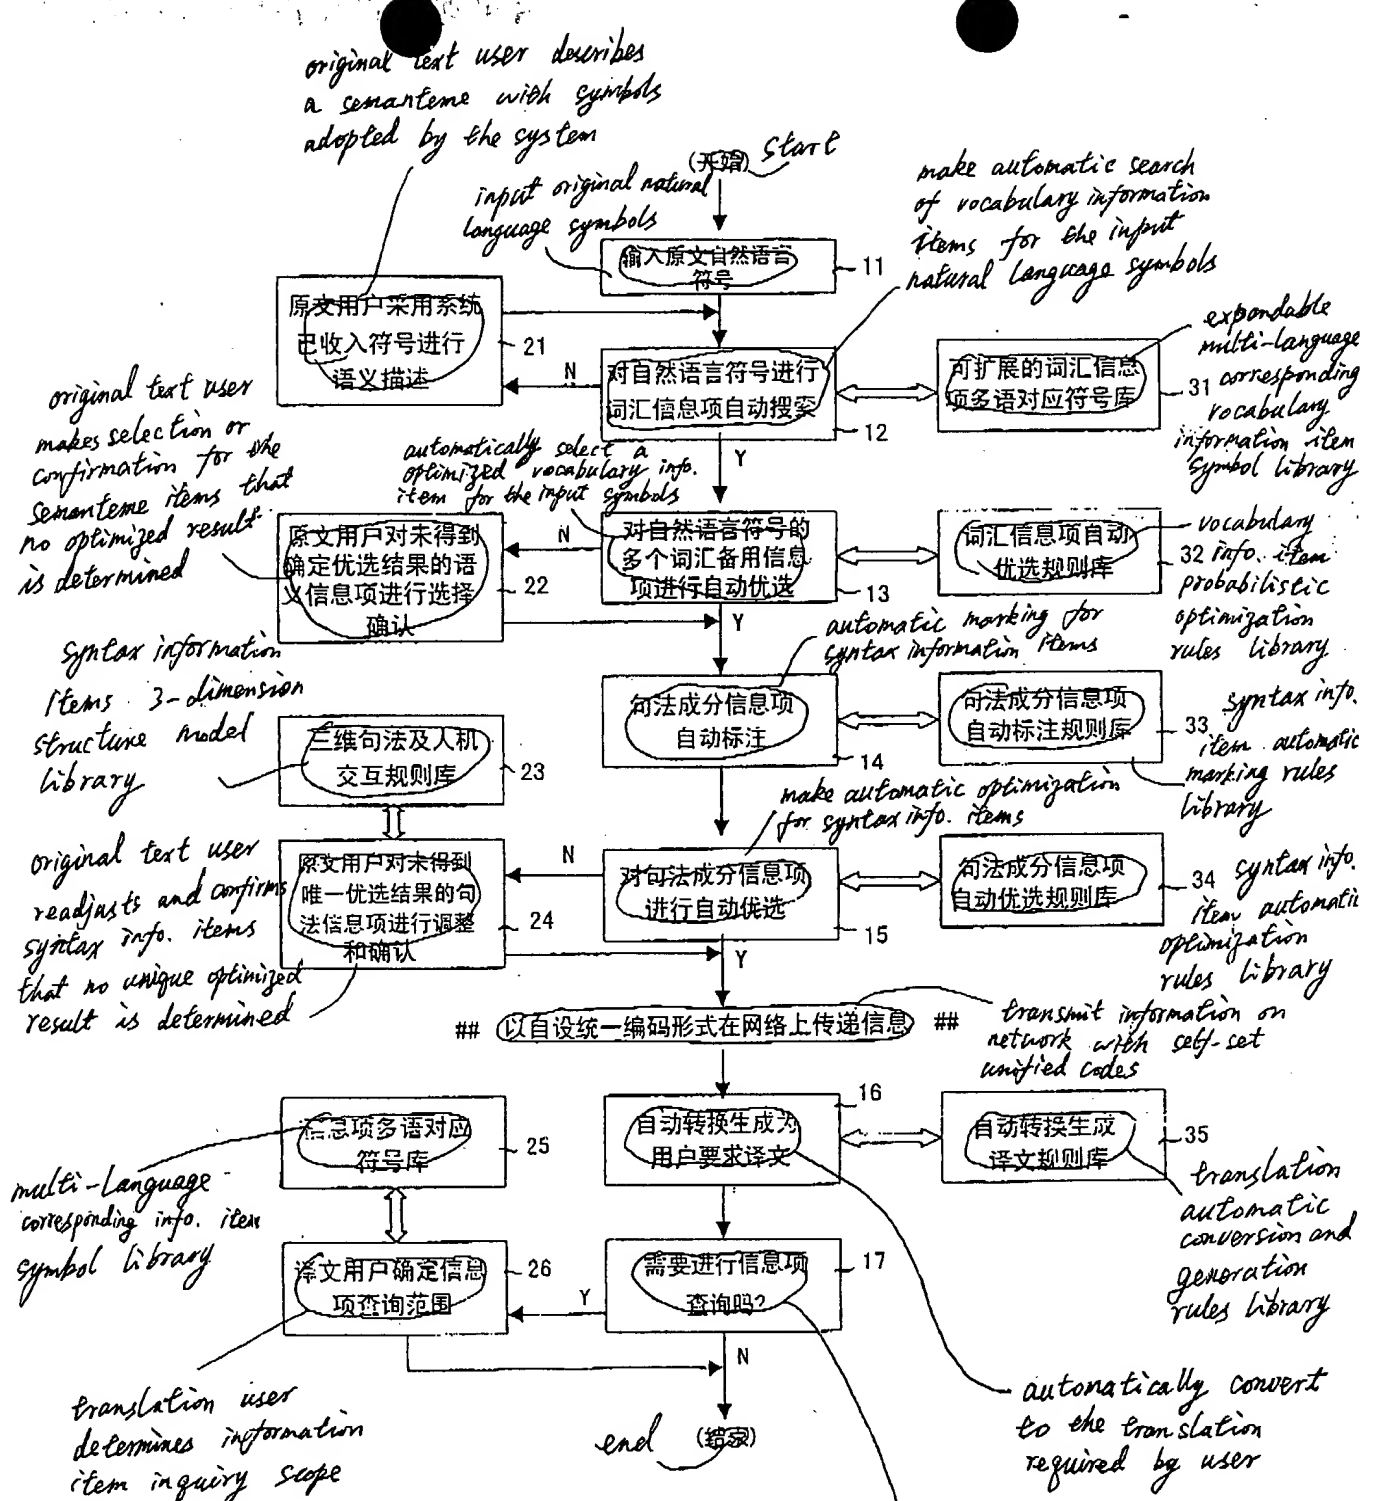 original text user describes
a semanteme with symbols
adopted by the system
(开始) start
input original natural
language symbols
make automatic search
of vocabulary information
items for the input
natural language symbols
输入原文自然语言
符号
11
原文用户采用系统
已收入符号进行
语义描述
21
N
对自然语言符号进行
词汇信息项自动搜索
12
Y
可扩展的词汇信息
项多语对应符号库
31
expandable
multi-language
corresponding
vocabulary
information item
symbol library
original text user
makes selection or
confirmation for the
semanteme items that
no optimized result
is determined
automatically select a
optimized vocabulary info.
item for the input symbols
原文用户对未得到
确定优选结果的语
义信息项进行选择
确认
22
N
对自然语言符号的
多个词汇备用信息
项进行自动优选
13
Y
词汇信息项自动
优选规则库
32
vocabulary
info. item
probabilistic
optimization
rules library
automatic marking for
syntax information items
syntax information
items 3-dimension
structure model
library
三维句法及人机
交互规则库
23
句法成分信息项
自动标注
14
句法成分信息项
自动标注规则库
33
syntax info.
item automatic
marking rules
library
make automatic optimization
for syntax info. items
original text user
readjusts and confirms
syntax info. items
that no unique optimized
result is determined
原文用户对未得到
唯一优选结果的句
法信息项进行调整
和确认
24
N
对句法成分信息项
进行自动优选
15
Y
句法成分信息项
自动优选规则库
34
syntax info.
item automatic
optimization
rules library
## 以自设统一编码形式在网络上传递信息 ##
transmit information on
network with self-set
unified codes
信息项多语对应
符号库
25
multi-language
corresponding info. item
symbol library
自动转换生成为
用户要求译文
16
自动转换生成
译文规则库
35
translation
automatic
conversion and
generation
rules library
译文用户确定信息
项查询范围
26
Y
需要进行信息项
查询吗?
17
N
translation user
determines information
item inquiry scope
end (结束)
automatically convert
to the translation
required by user